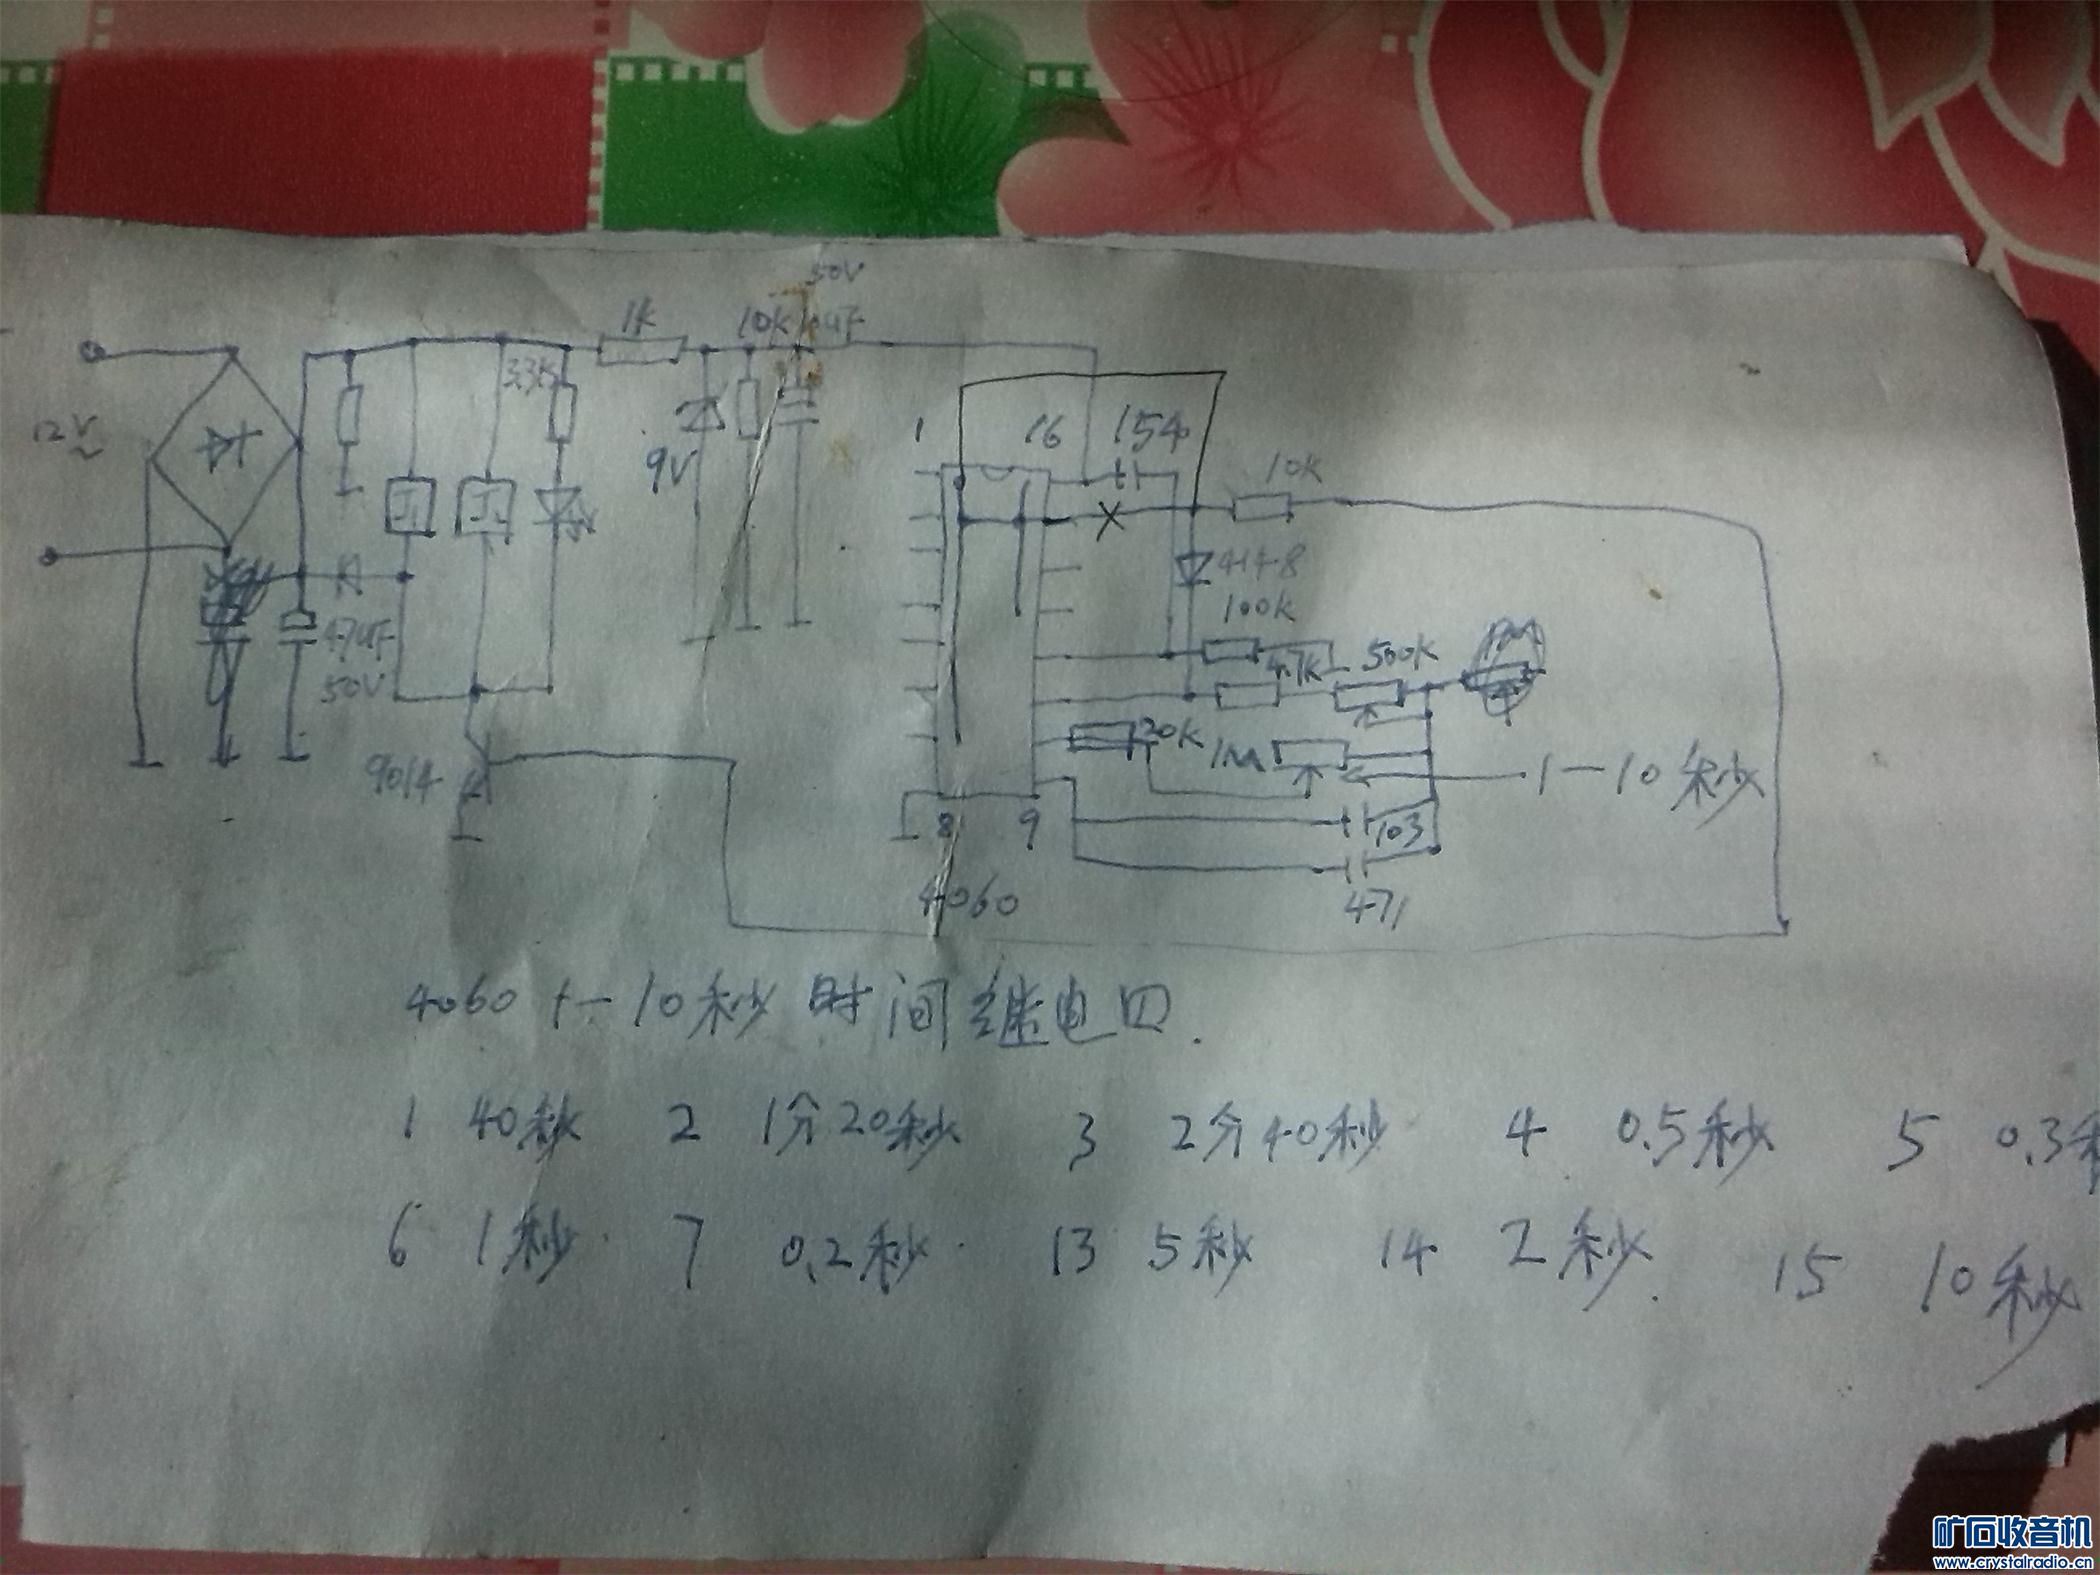 50V
1K 10K 10uF
3.3K
12V
~
9V
1 16 154 10K
4148
47uF
50V
100K
4.7K 500K
20K 1M 1—10秒
9014
8 9 103
4060 471
4060 1—10秒时间继电四.
1 40秒 2 1分20秒 3 2分40秒 4 0.5秒 5 0.3秒
6 1秒. 7 0.2秒. 13 5秒 14 2秒. 15 10秒
矿石收音机
www.crystalradio.cn